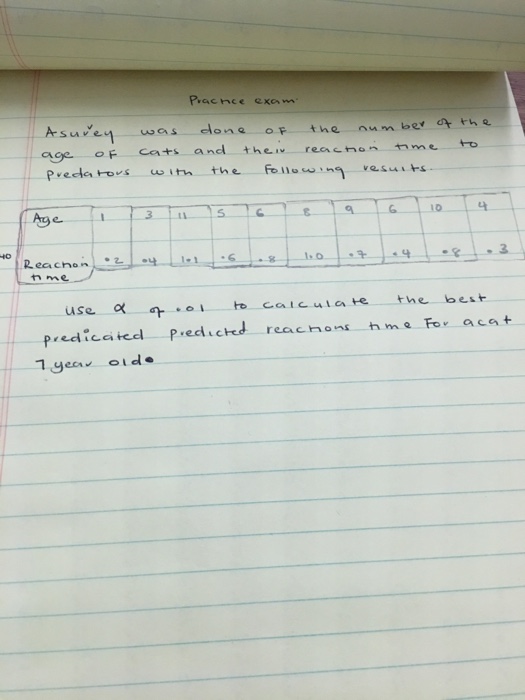 Practice exam
A survey was done of the number of the
age of cats and their reaction time to
predators with the following results.
Age 1 3 11 5 6 8 9 6 10 4
40 Reaction time .2 .4 1.1 .6 .8 1.0 .7 .4 .8 .3
use α of .01 to calculate the best
predicated predicted reactions time For a cat
7 year old.